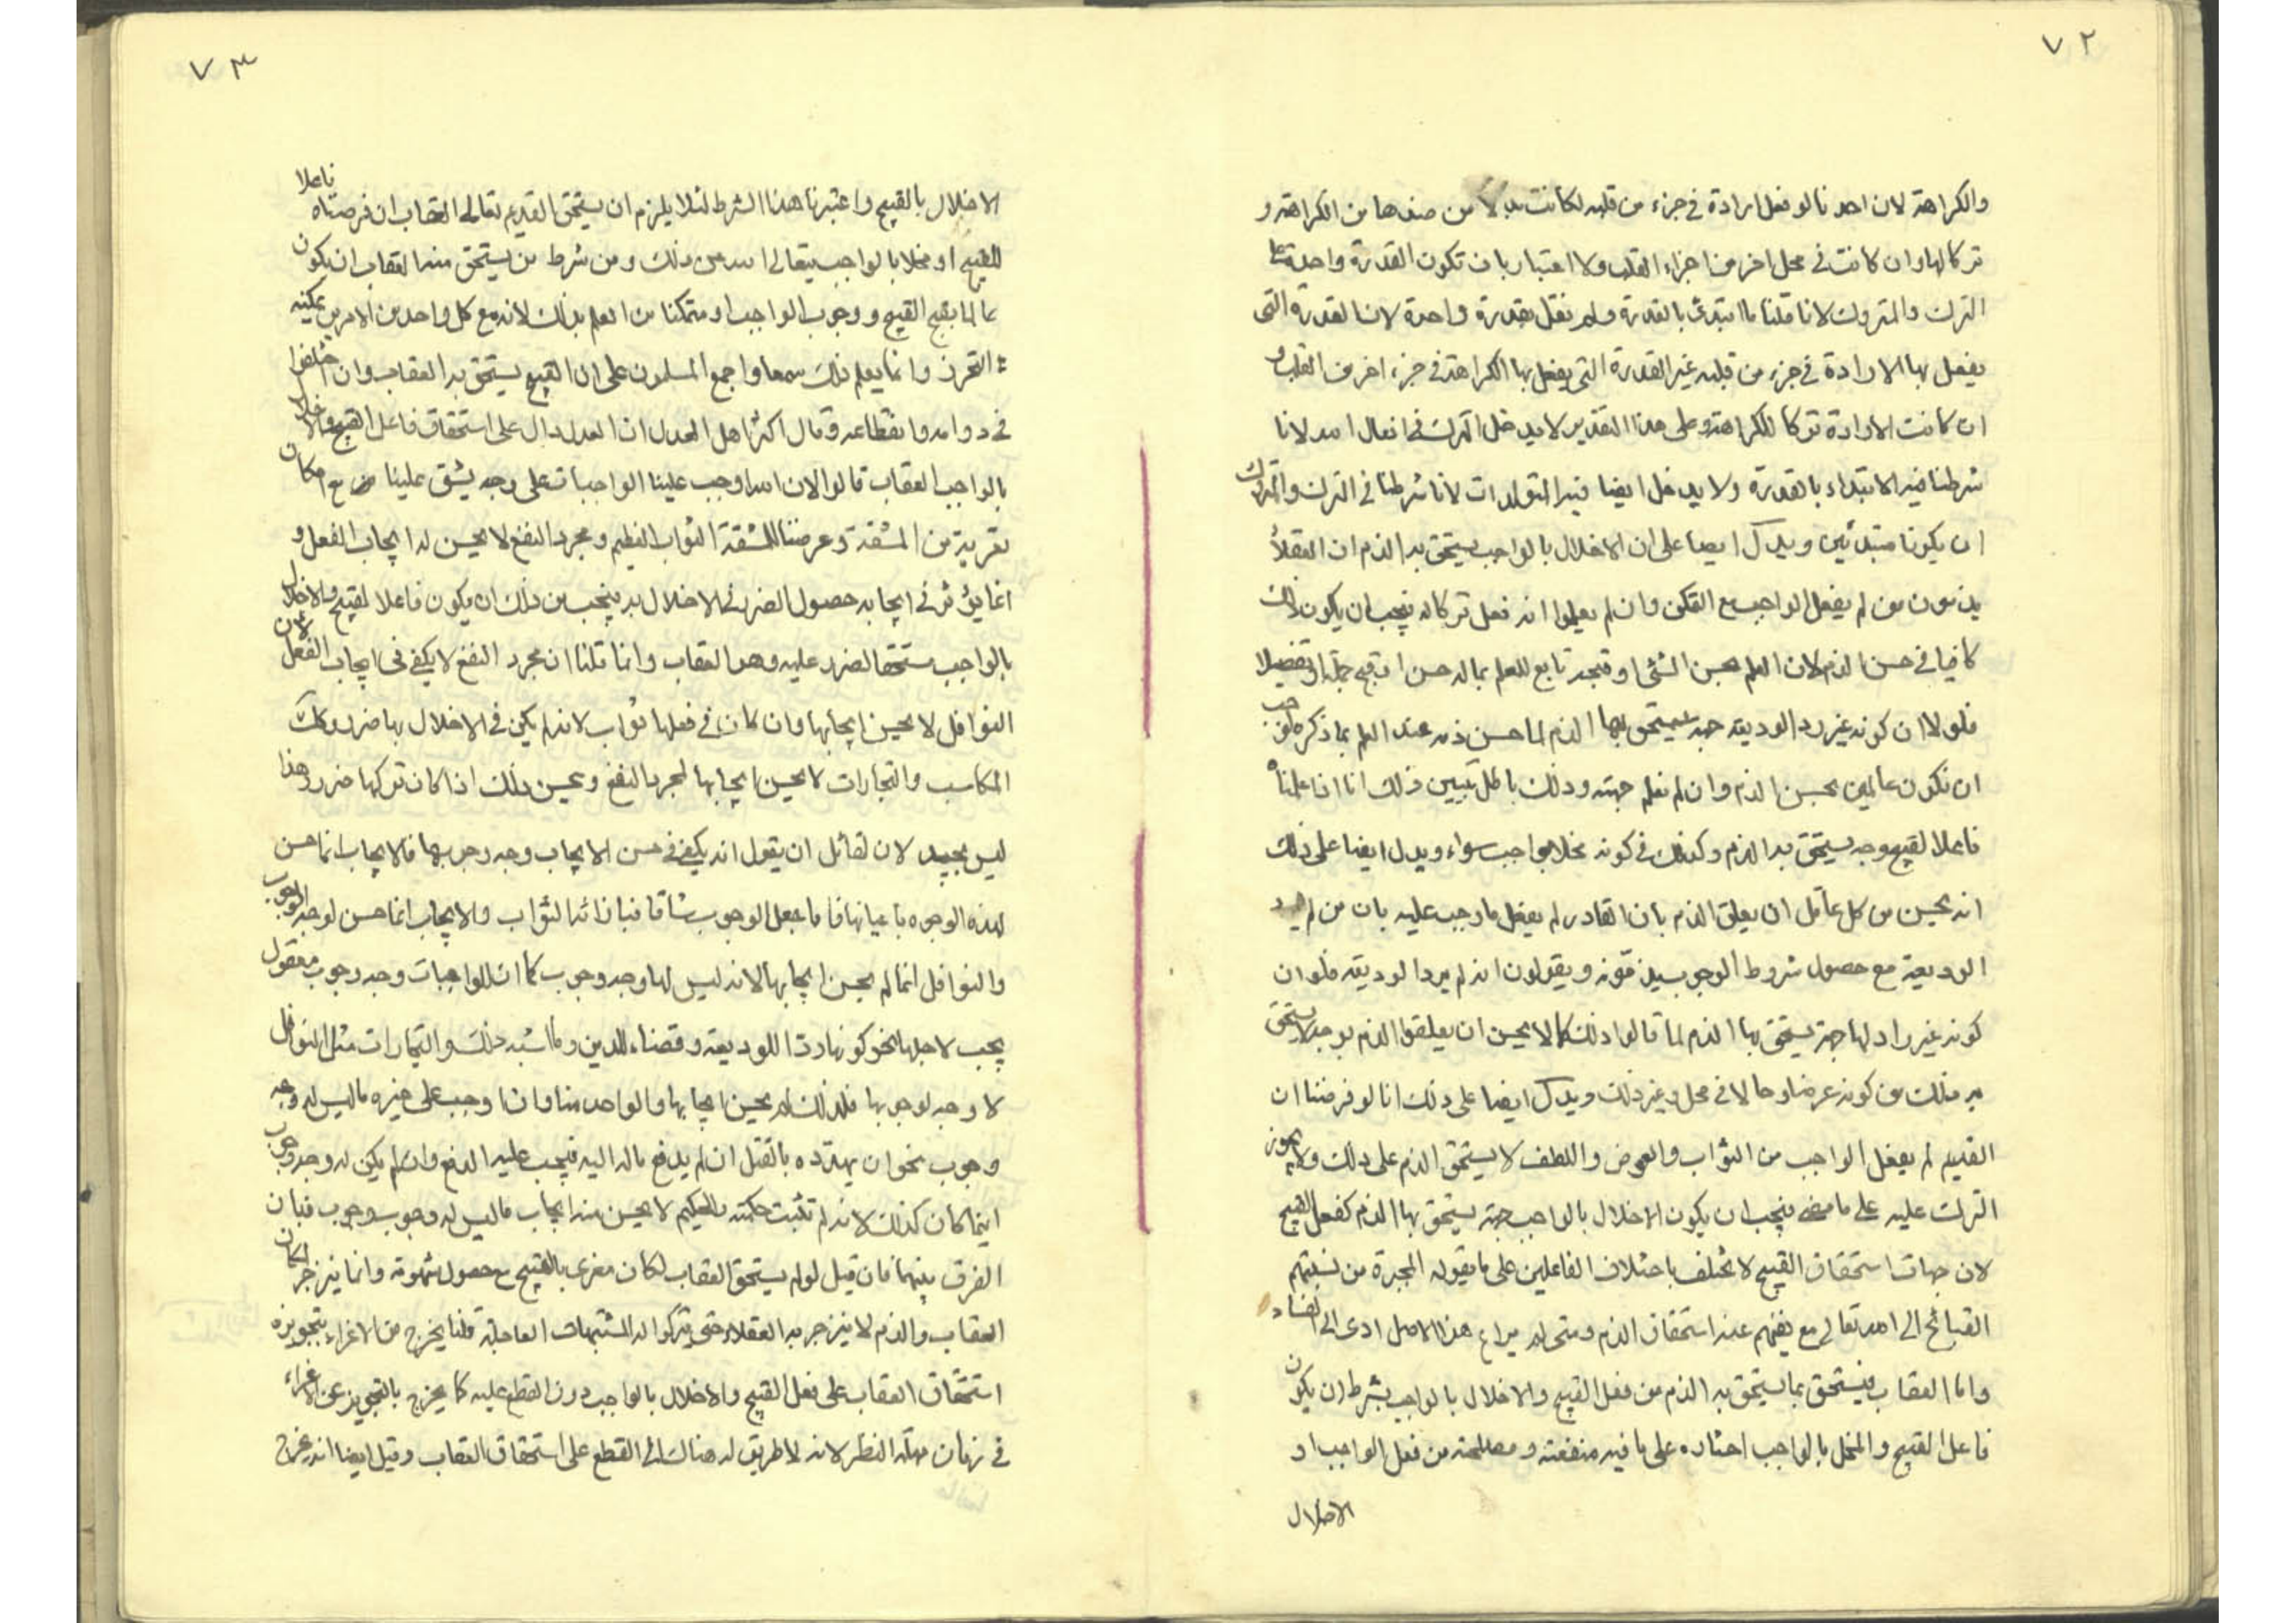 ٧٢
والكراهة لان احدنا لو فعل ارادة في جزء من قلبه لكانت بدلا من صنفها من الكراهة و
تركا لها وان كانت في محل اخر من اجزاء القلب ولا اعتبار بان تكون القدرة واحدة على
الترك والمتروك لانا قلنا ما ابتدئ بالقدرة ولم نقل بقدرة واحدة لان القدرة التى
يفعل بها الارادة في جزء من قلبه غير القدرة التى يفعل بها الكراهة في جزء اخر من القلب و
ان كانت الارادة تركا للكراهة وعلى هذا التقدير لا يدخل الترك في افعال الله لانا
شرطنا فيه الابتداء بالقدرة ولا يدخل ايضا فيه المتولدات لانا شرطنا في الترك والمتروك
ان يكونا مبتدئين ويدل ايضا على ان الاخلال بالواجب يستحق به الذم ان العقلاء
يذمون من لم يفعل الواجب مع التمكن وان لم يعلموا انه فعل تركا له فيجب ان يكون ذلك
كافيا في حسن الذم لان العلم بحسن الشئ او قبحه تابع للعلم بماله حسن او قبح جملة او تفصيلا
فلولا ان كونه غير رد الوديعة جهة يستحق بها الذم لما حسن ذمه عند العلم بما ذكر ولوجب
ان نكون عالمين بحسن الذم وان لم نعلم جهته وذلك باطل تبيين ذلك انا اذا علمناه
فاعلا لقبيح وجه يستحق به الذم وكذلك في كونه مخلا بواجب سواء ويدل ايضا على ذلك
انه يحسن من كل عاقل ان يعلق الذم بان القادر لم يفعل ما وجب عليه بان من لم يرد
الوديعة مع حصول شروط الوجوب يذمونه ويقولون انه لم يرد الوديعة فلو ان
كونه غير راد لها جهة يستحق بها الذم لما قالوا ذلك كما لا يحسن ان يعلقوا الذم بوجه لا يستحق
به ذلك من كونه عرضا وحالا في محل وغير ذلك ويدل ايضا على ذلك انا لو فرضنا ان
القديم لم يفعل الواجب من الثواب والعوض واللطف لا يستحق الذم على ذلك ولا يجوز
الترك عليه على ما مضى فيجب ان يكون الاخلال بالواجب جهة يستحق بها الذم كفعل القبيح
لان جهات استحقاق القبيح لا تختلف باختلاف الفاعلين على ما يقوله المجبرة من نسبتهم
القبائح الى الله تعالى مع نفيهم عنه استحقاق الذم ومتى لم يراع هذا الاصل ادى الى الفساد
واما العقاب فيستحق بما يستحق به الذم من فعل القبيح والاخلال بالواجب بشرط ان يكون
فاعل القبيح والمخل بالواجب اختاره على ما فيه منفعته ومصلحته من فعل الواجب او
الاخلال
٧٣
الاخلال بالقبيح واعتبرنا هذا الشرط لئلا يلزم ان يستحق القديم تعالى العقاب ان فرضناه فاعلا
للقبيح او مخلا بالواجب يتعالى الله عن ذلك ومن شرط من يستحق منه العقاب ان يكون
عالما بقبح القبيح ووجوب الواجب او متمكنا من العلم بذلك لانه مع كل واحد من الامرين يمكنه
التحرز وانما يعلم ذلك سمعا واجمع المسلمون على ان القبيح يستحق به العقاب وان اختلفوا
في دوامه وانقطاعه وقال اكثر اهل العدل ان العدل دال على استحقاق فاعل القبيح والاخلال
بالواجب العقاب قالوا لان الله اوجب علينا الواجبات على وجه يشق علينا مع امكان
تعريته من المشقة وعرضنا للمشقة الثواب العظيم ومجرد النفع لا يحسن له ايجاب الفعل و
انما يؤثر في ايجابه حصول الضرر في الاخلال به فيجب من ذلك ان يكون فاعلا لقبيح والاخلال
بالواجب مستحقا لضرر عليه وهو العقاب وانما قلنا ان مجرد النفع لا يكفي في ايجاب الفعل لان
النوافل لا يحسن ايجابها وان كان في فعلها ثواب لانه لم يكن في الاخلال بها ضرر وكذلك
المكاسب والتجارات لا يحسن ايجابها لمجرد النفع ويحسن ذلك اذا كان تركها ضرر وهذا
ليس بجيد لان لقائل ان يقول انه يكفي في حسن الايجاب وجه وجوبها فالايجاب انما حسن
لهذه الوجوه باعيانها فاما جعل الوجوب شاقا فبازائه الثواب والايجاب انما حسن لوجه الوجوب
والنوافل انما لم يحسن ايجابها لانه ليس لها وجه وجوب كما ان للواجبات وجه وجوب معقول
يجب لاجلها نحو كونها ردا للوديعة وقضاء للدين وما اشبه ذلك والتجارات مثل النوافل
لا وجه لوجوبها فلذلك لم يحسن ايجابها والواحد منا وان اوجب على غيره ما ليس له وجه
وجوب نحو ان يهدده بالقتل ان لم يدفع ماله اليه فيجب عليه الدفع وان لم يكن له وجه وجوب
انما كان كذلك لانه لم تثبت حكمته والحكيم لا يحسن منه ايجاب ما ليس له وجوب وجوب فبان
الفرق بينهما فان قيل لو لم يستحق العقاب لكان مغرى بالقبيح مع حصول شهوته وانما ينزجر لمكان
العقاب والذم لا ينزجر به العقلاء حتى يتركوا له المشتهيات العاجلة قلنا يخرج من الاغراء بتجويزه
استحقاق العقاب على فعل القبيح والاخلال بالواجب دون القطع عليه كما يخرج بالتجويز عن الاغراء
في زمان مهلة النظر لانه لا طريق له هناك الى القطع على استحقاق العقاب وقيل ايضا انه يخرج